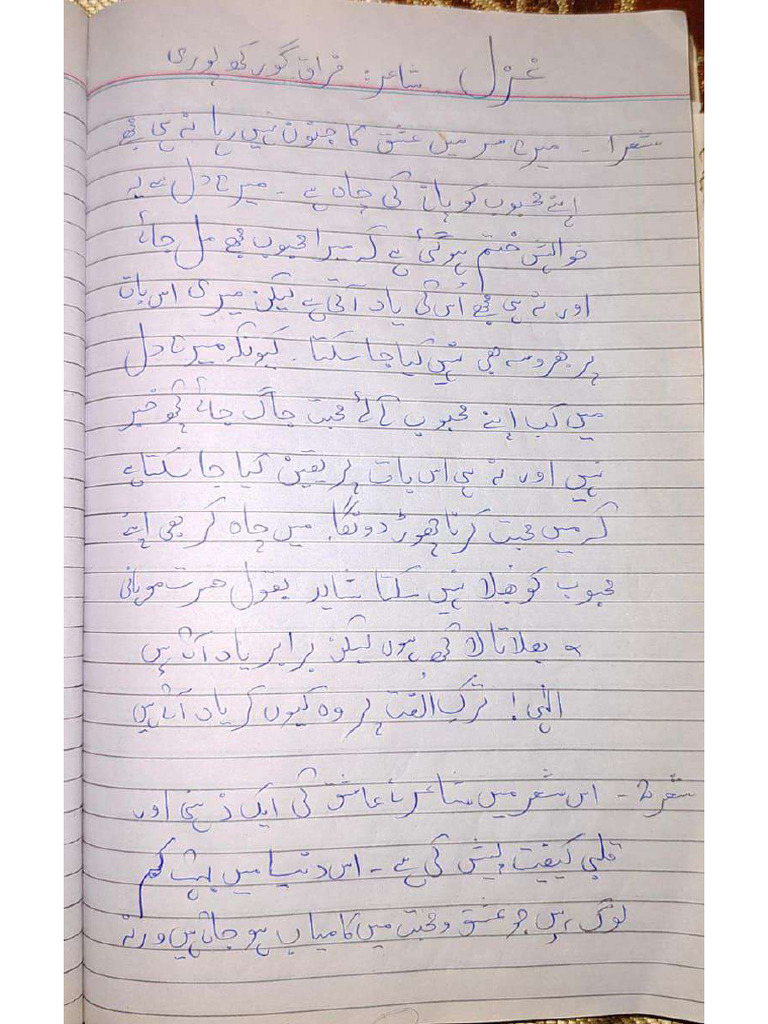 غزل شاعر: فراق گورکھپوری
شعر 1 - میرے سر میں عشق کا جنون نہیں رہا نہ ہی مجھے
اپنے محبوب کو پانے کی چاہ ہے - میرے دل سے یہ
خواہش ختم ہو گئی ہے کہ میرا محبوب مجھے مل جائے
اور نہ ہی مجھے اُس کی یاد آتی ہے لیکن میری اس بات
پر بھروسہ بھی نہیں کیا جا سکتا۔ کیونکہ میرے دل
میں کب اپنے محبوب کے لئے محبت جاگ جائے کچھ خبر
نہیں اور نہ ہی اس بات پر یقین کیا جا سکتا ہے
کہ میں محبت کرنا چھوڑ دونگا۔ میں چاہ کر بھی اپنے
محبوب کو بھلا نہیں سکتا شاید بقول حسرت موہانی
؎ بھلاتا لاکھ ہوں لیکن برابر یاد آتے ہیں
الٰہی! ترکِ الفت پر وہ کیوں کر یاد آتے ہیں
شعر 2 - اس شعر میں شاعر نے عاشق کی ایک ذہنی اور
قلبی کیفیت پیش کی ہے - اس دنیا میں بہت کم
لوگ ہیں جو عشق و محبت میں کامیاب ہو جاتے ہیں ورنہ